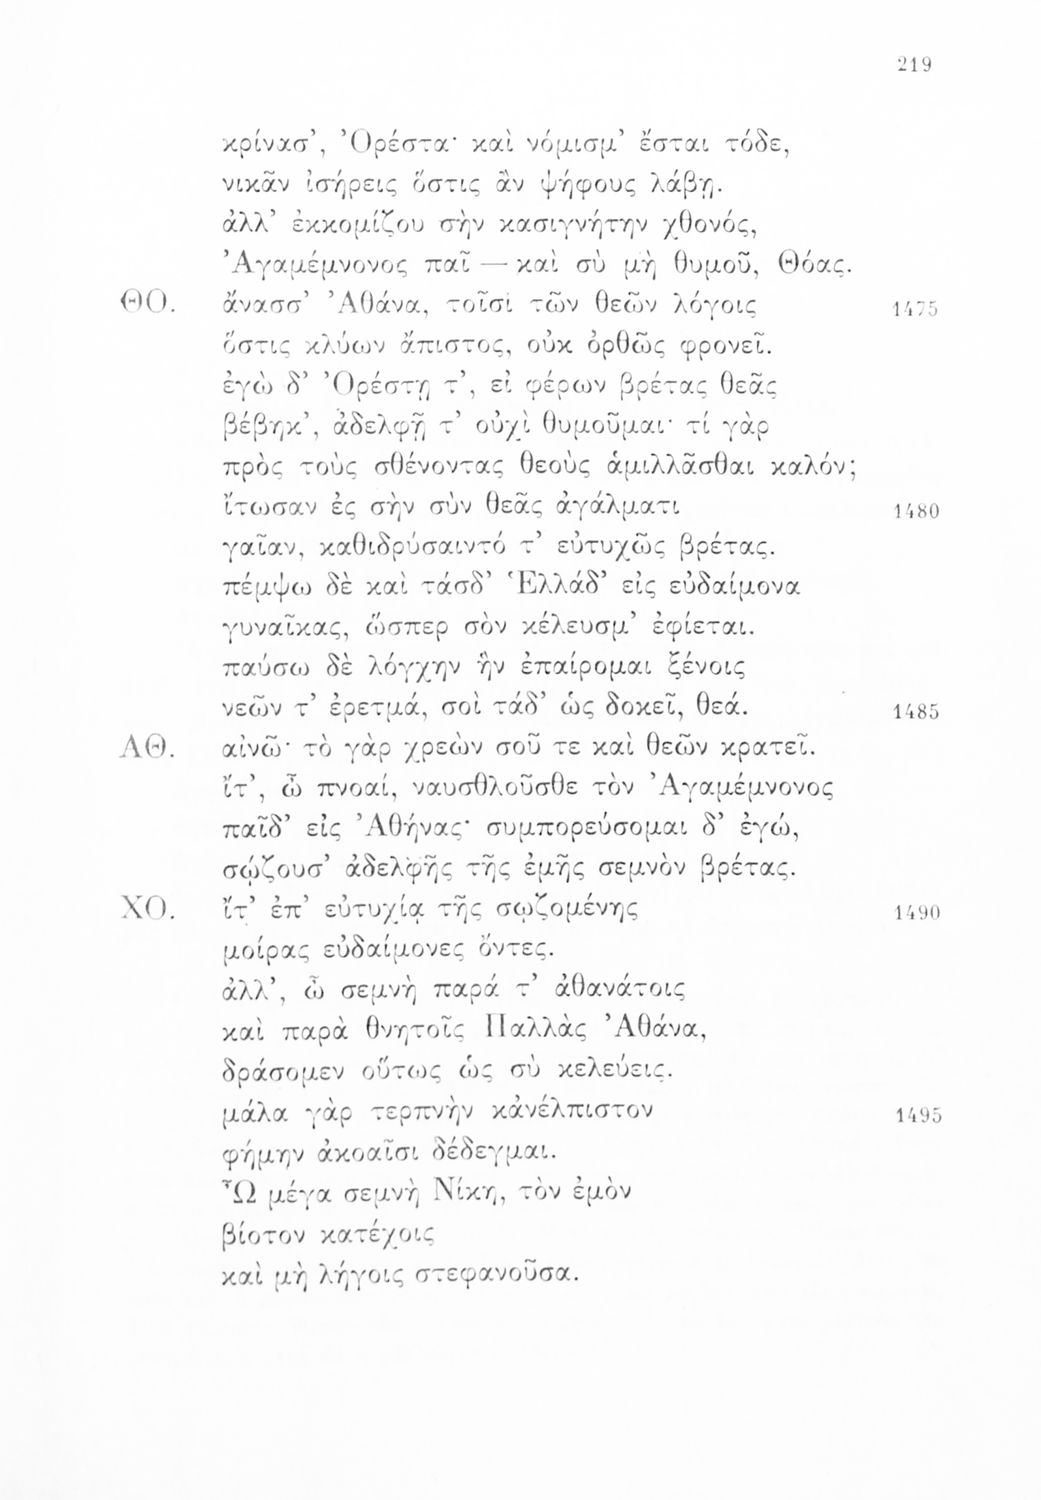 219
κρίνασ’, Ὀρέστα· καὶ νόμισμ’ ἔσται τόδε,
νικᾶν ἰσήρεις ὅστις ἂν ψήφους λάβῃ.
ἀλλ’ ἐκκομίζου σὴν κασιγνήτην χθονός,
Ἀγαμέμνονος παῖ — καὶ σὺ μὴ θυμοῦ, Θόας.
ΘΟ. ἄνασσ’ Ἀθάνα, τοῖσι τῶν θεῶν λόγοις 1475
ὅστις κλύων ἄπιστος, οὐκ ὀρθῶς φρονεῖ.
ἐγὼ δ’ Ὀρέστῃ τ’, εἰ φέρων βρέτας θεᾶς
βέβηκ’, ἀδελφῇ τ’ οὐχὶ θυμοῦμαι· τί γὰρ
πρὸς τοὺς σθένοντας θεοὺς ἁμιλλᾶσθαι καλόν;
ἴτωσαν ἐς σὴν σὺν θεᾶς ἀγάλματι 1480
γαῖαν, καθιδρύσαιντό τ’ εὐτυχῶς βρέτας.
πέμψω δὲ καὶ τάσδ’ Ἑλλάδ’ εἰς εὐδαίμονα
γυναῖκας, ὥσπερ σὸν κέλευσμ’ ἐφίεται.
παύσω δὲ λόγχην ἣν ἐπαίρομαι ξένοις
νεῶν τ’ ἐρετμά, σοὶ τάδ’ ὡς δοκεῖ, θεά. 1485
ΑΘ. αἰνῶ· τὸ γὰρ χρεὼν σοῦ τε καὶ θεῶν κρατεῖ.
ἴτ’, ὦ πνοαί, ναυσθλοῦσθε τὸν Ἀγαμέμνονος
παῖδ’ εἰς Ἀθήνας· συμπορεύσομαι δ’ ἐγώ,
σῴζουσ’ ἀδελφῆς τῆς ἐμῆς σεμνὸν βρέτας.
ΧΟ. ἴτ’ ἐπ’ εὐτυχίᾳ τῆς σῳζομένης 1490
μοίρας εὐδαίμονες ὄντες.
ἀλλ’, ὦ σεμνὴ παρά τ’ ἀθανάτοις
καὶ παρὰ θνητοῖς Παλλὰς Ἀθάνα,
δράσομεν οὕτως ὡς σὺ κελεύεις.
μάλα γὰρ τερπνὴν κἀνέλπιστον 1495
φήμην ἀκοαῖσι δέδεγμαι.
Ὦ μέγα σεμνὴ Νίκη, τὸν ἐμὸν
βίοτον κατέχοις
καὶ μὴ λήγοις στεφανοῦσα.